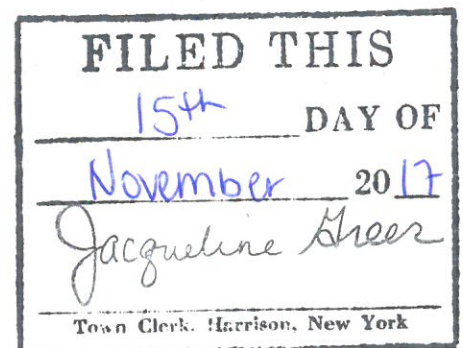 FILED THIS
15th DAY OF
November 2017
Jacqueline Greer
Town Clerk. Harrison, New York